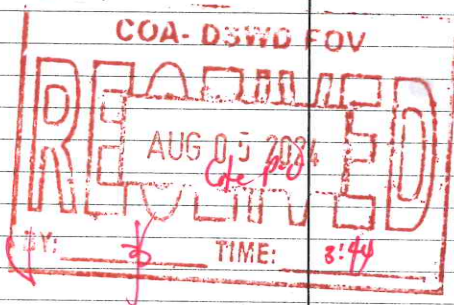 COA- DSWD FOV
RECEIVED
AUG 05 2024
BY: TIME: 3:44